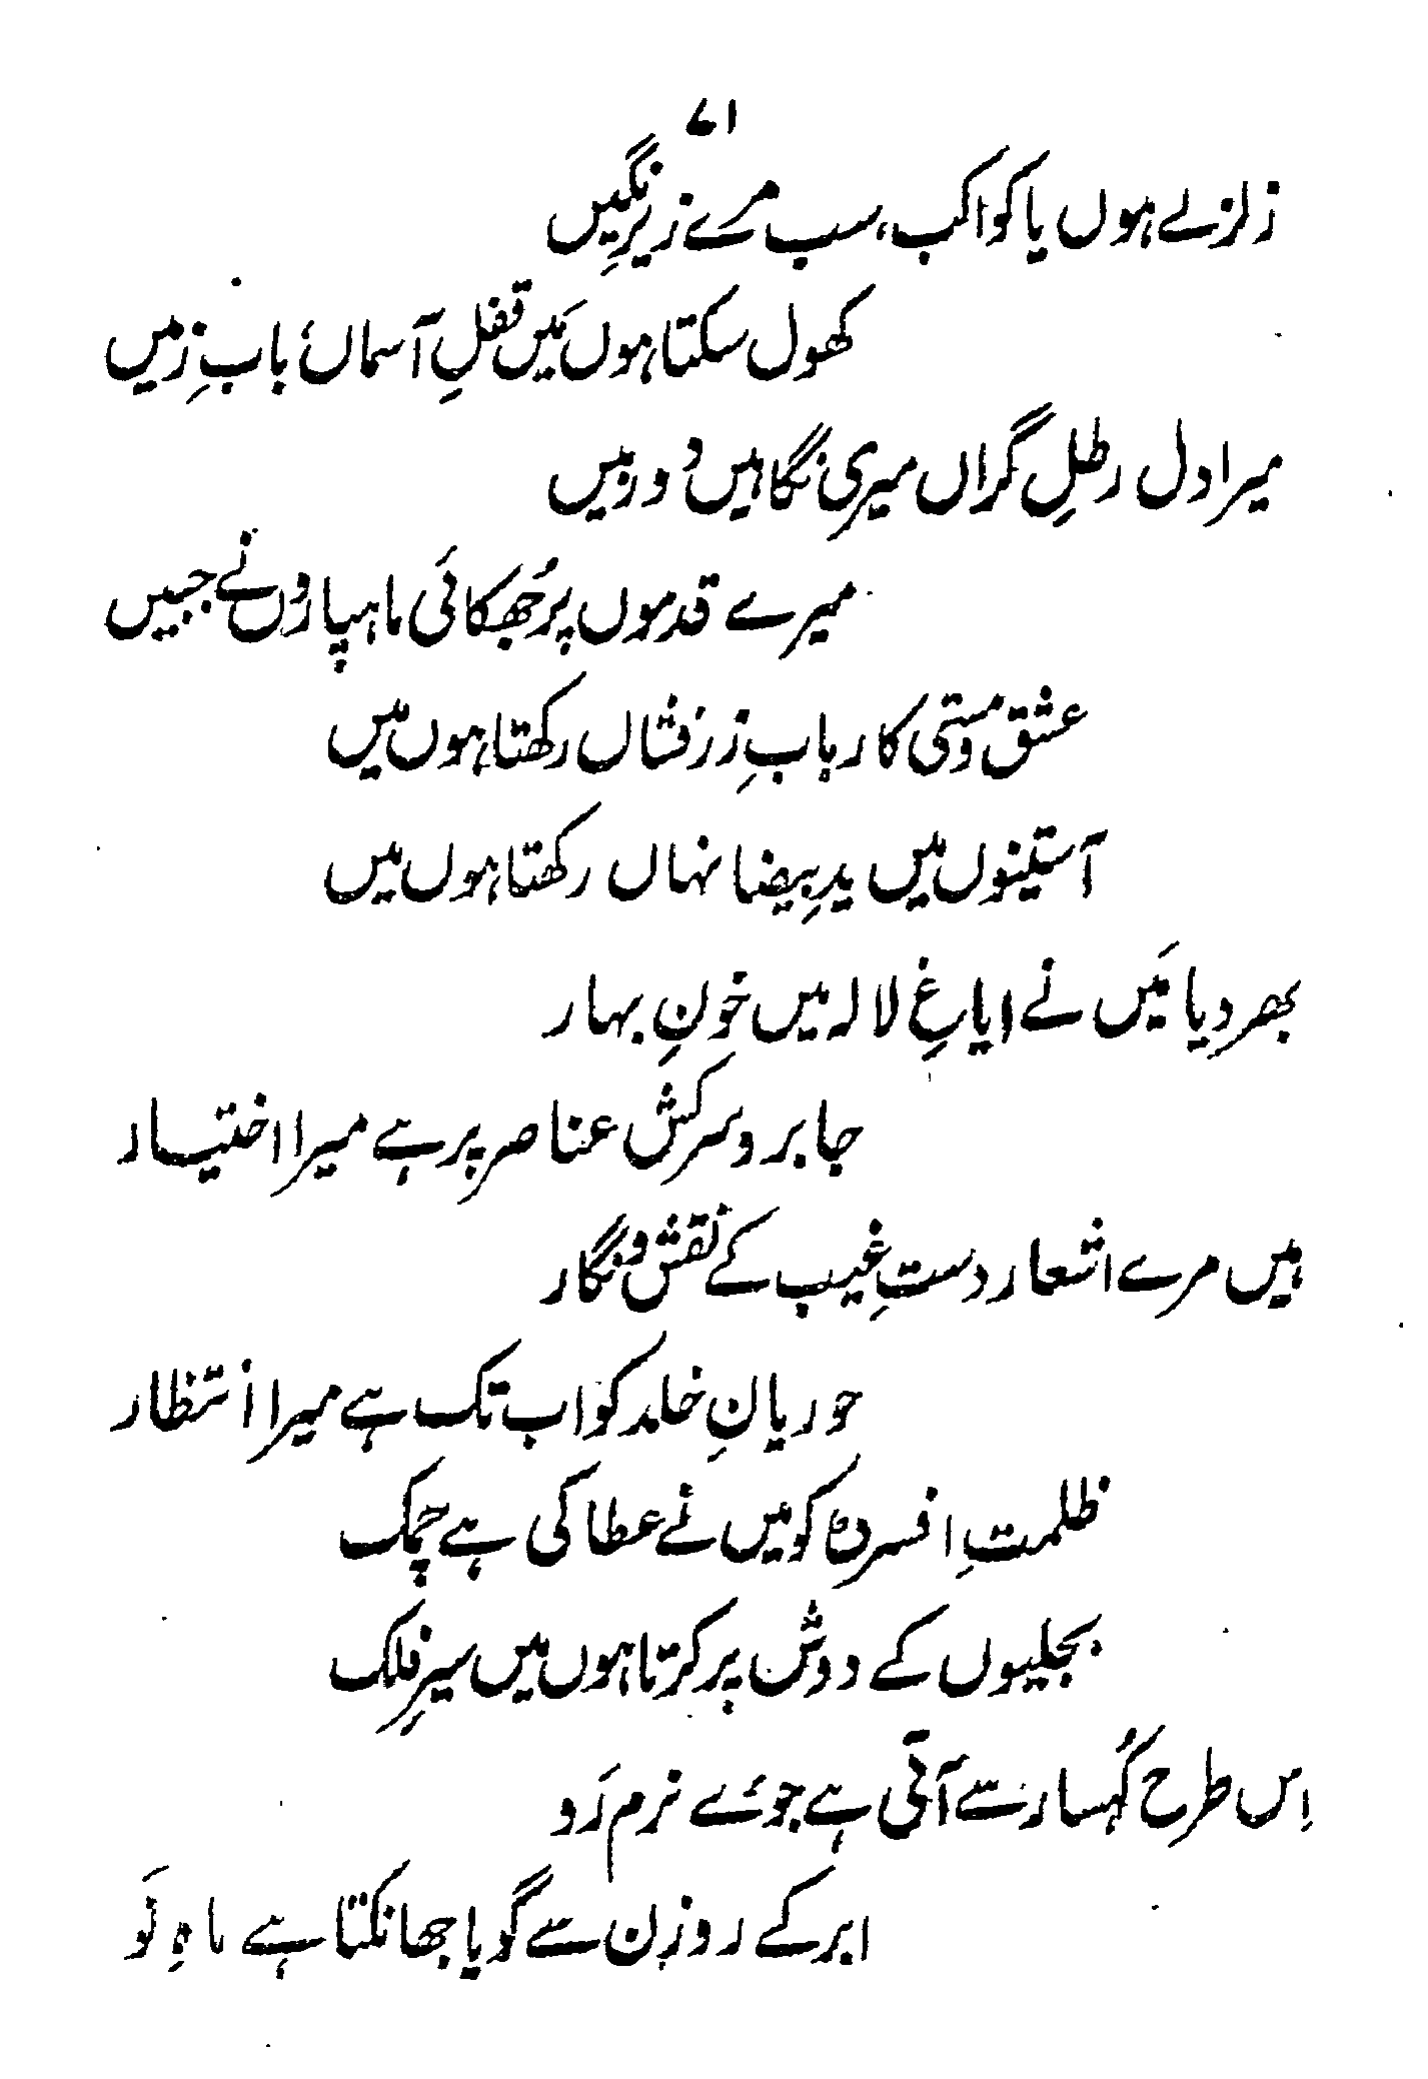 ۷۱
زلزلے ہوں یا کواکب، سب مرے زیرِ نگیں
کھول سکتا ہوں مَیں قفلِ آسماں بابِ زمیں
میرا دل رطلِ گراں میری نگاہیں دُوربیں
میرے قدموں پر جُھکائی ماہپاروں نے جبیں
عشق و مستی کا ربابِ زرفشاں رکھتا ہوں میں
آستینوں میں یدِ بیضا نہاں رکھتا ہوں میں
بھر دیا مَیں نے ایاغِ لالہ میں خونِ بہار
جابر و سرکش عناصر پر ہے میرا اختیار
ہیں مرے اشعار دستِ غیب کے نقش و نگار
حوریانِ خلد کو اب تک ہے میرا انتظار
ظلمتِ افسردہ کو میں نے عطا کی ہے چمک
بجلیوں کے دوش پر کرتا ہوں میں سیرِ فلک
اِس طرح کُہسار سے آتی ہے جوئے نرم رَو
ابر کے روزن سے گویا جھانکتا ہے ماہِ نَو